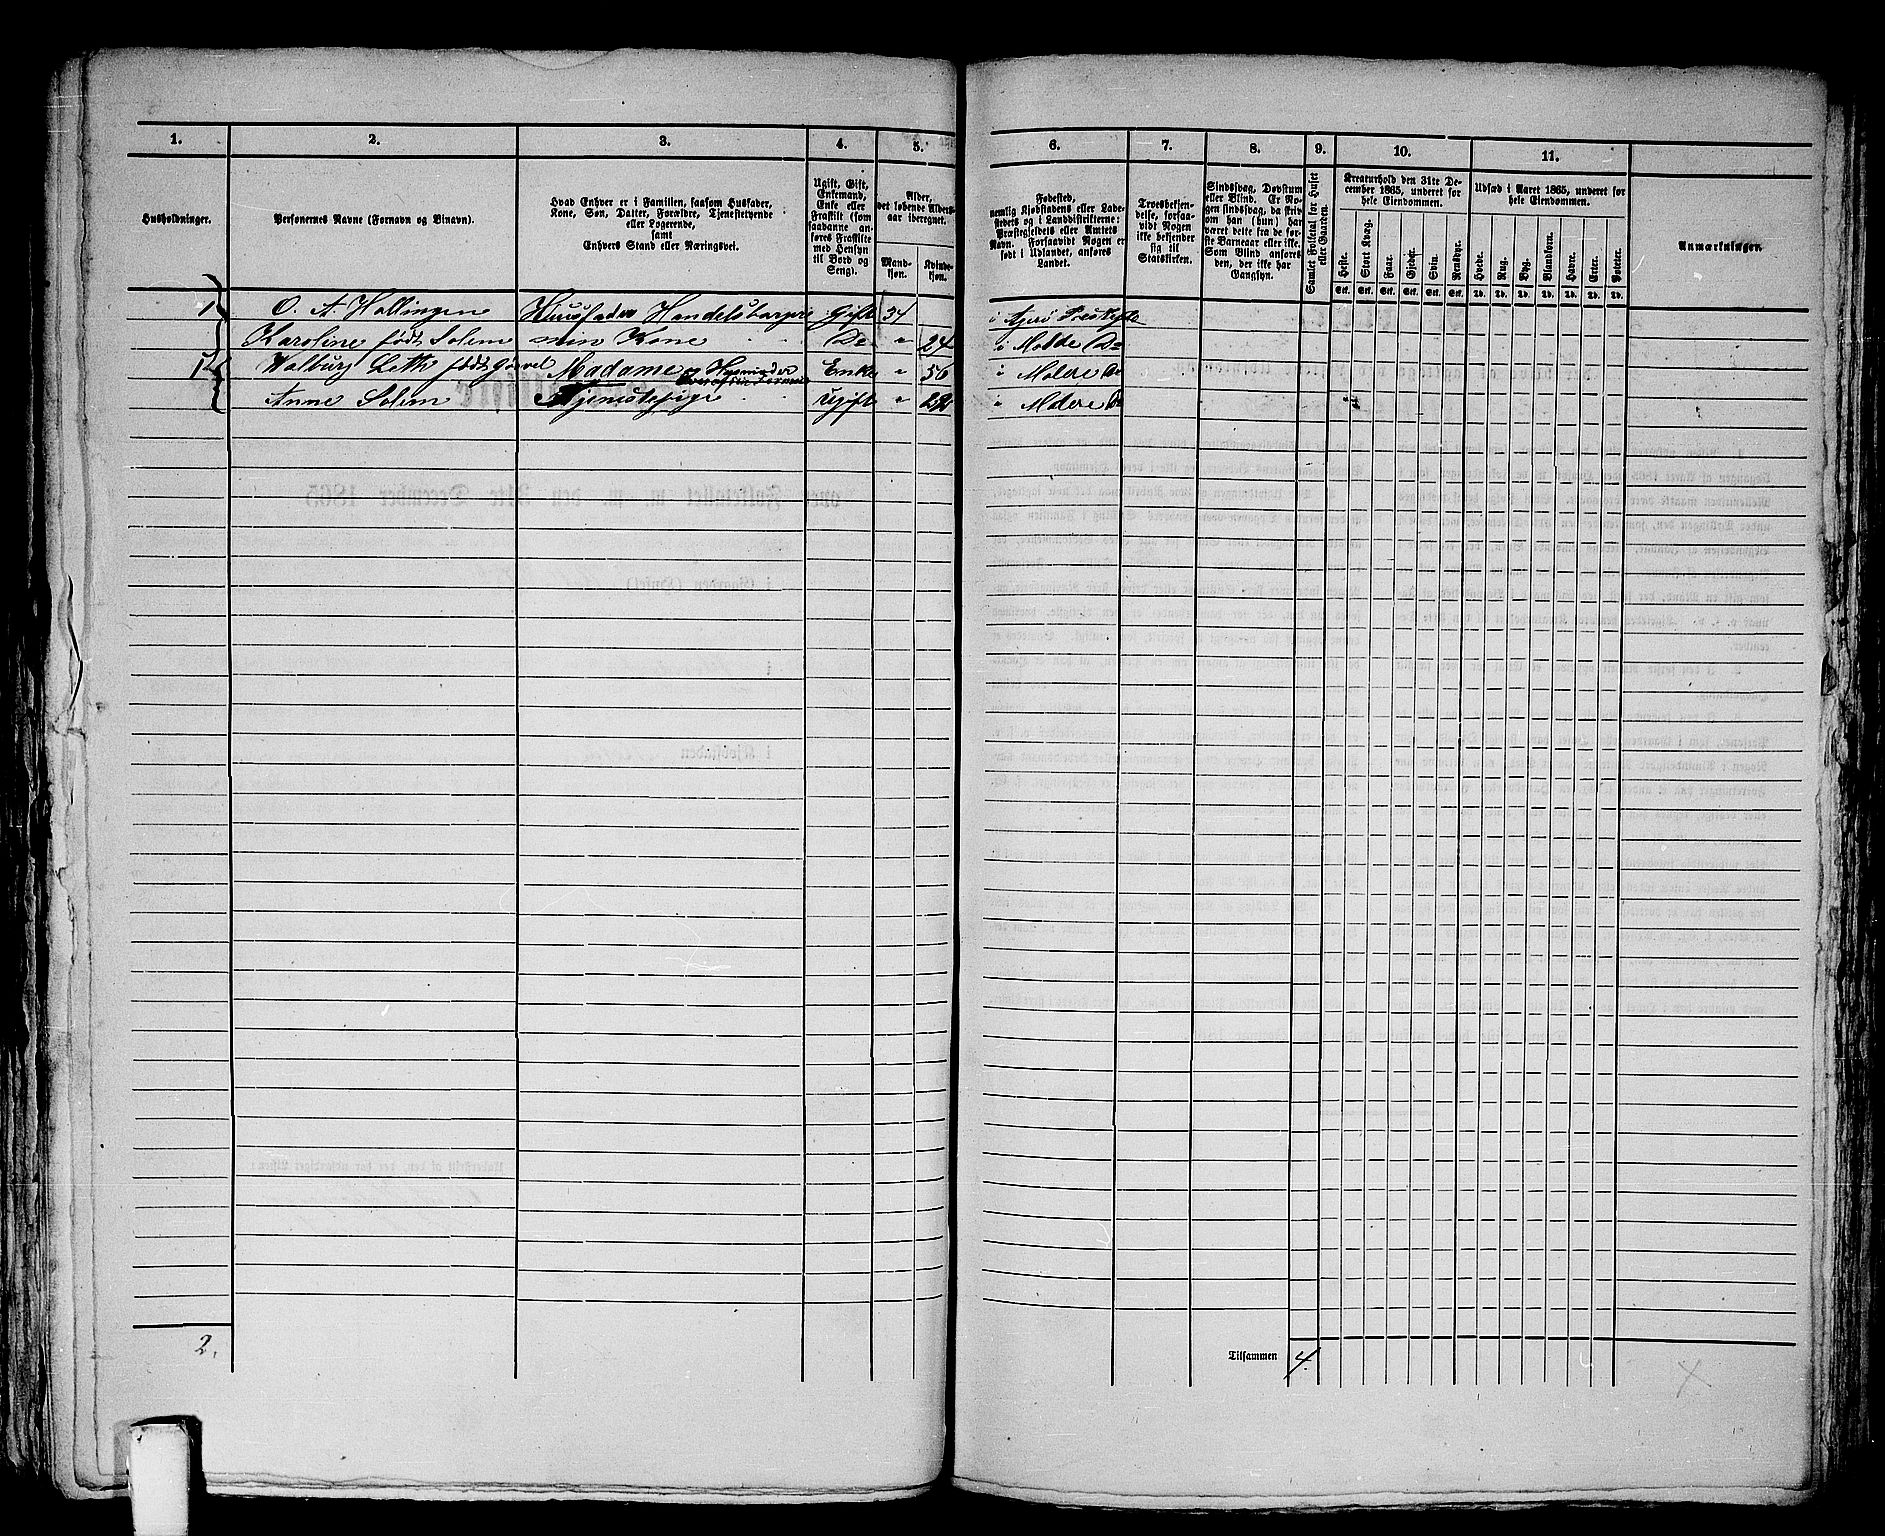 1. 2. 3. 4. 5. 6. 7. 8. 9. 10. 11.
Husholdninger.
Personernes Navne (Fornavn og Binavn).
Hvad Enhver er i Familien, saasom Husfader,
Kone, Søn, Datter, Forældre, Tjenestetyende
eller Logerende,
samt
Enhvers Stand eller Næringsvei.
Ugift, Gift,
Enkemand,
Enke eller
Fraskilt (som
saadanne an-
føres Fraskilte
med Hensyn
til Bord og
Seng).
Alder,
det løbende Alders-
aar iberegnet.
Mand-
kjøn.
Kvinde-
kjøn.
Fødested,
nemlig Kjøbstadens eller Lade-
stedets og i Landdistrikterne:
Præstegjeldets eller Amtets
Navn. Forsaavidt Nogen er
født i Udlandet, anføres
Landet.
Troesbekjen-
delse, forsaa-
vidt Nogen
ikke bekjender
sig til
Statskirken.
Sindssvag, Døvstum
eller Blind. Er No-
gen sindssvag, da skriv
om han (hun) har
været dette fra de før-
ste Barneaar eller ikke.
Som Blind anføres
den, der ikke har
Gangsyn.
Samlet Folketal for Huset
eller Gaarden.
Kreaturhold den 31te De-
cember 1865, underet for
hele Eiendommen.
Heste. Stort Kvæg. Faar. Gjeder. Svin. Rensdyr.
Stk. Stk. Stk. Stk. Stk. Stk.
Udsæd i Aaret 1865, underet for
hele Eiendommen.
Hvede. Rug. Byg. Blandkorn. Havre. Erter. Poteter.
Td. Td. Td. Td. Td. Td. Td.
Anmærkninger.
1 O. A. Hollingen Huusfader Handelsborger Gift 34 i Prestegj
Karoline født Solem min Kone Do " 24 i Molde Do
1 Walburg Leth født Madame Enke " 56 i Molde Do
Anne Solem Tjenestepige Ugift " i Molde Do
2.
Tilsammen 4.